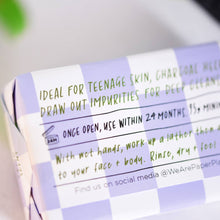 IDEAL FOR TEENAGE SKIN, CHARCOAL HELPS
DRAW OUT IMPURITIES FOR DEEP CLEAN
24M
ONCE OPEN, USE WITHIN 24 MONTHS.
With wet hands, work up a lather then
to your face + body. Rinse, dry + feel
Find us on social media @WeArePaperPl